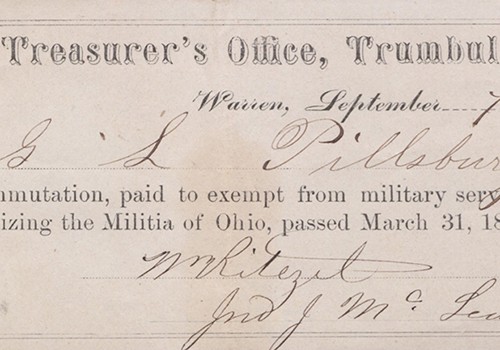 Treasurer's Office, Trumbul
Warren, September 7
G S Pillsbur
mmutation, paid to exempt from military serv
izing the Militia of Ohio, passed March 31, 18
Wm Ritezel
Jno J Mc